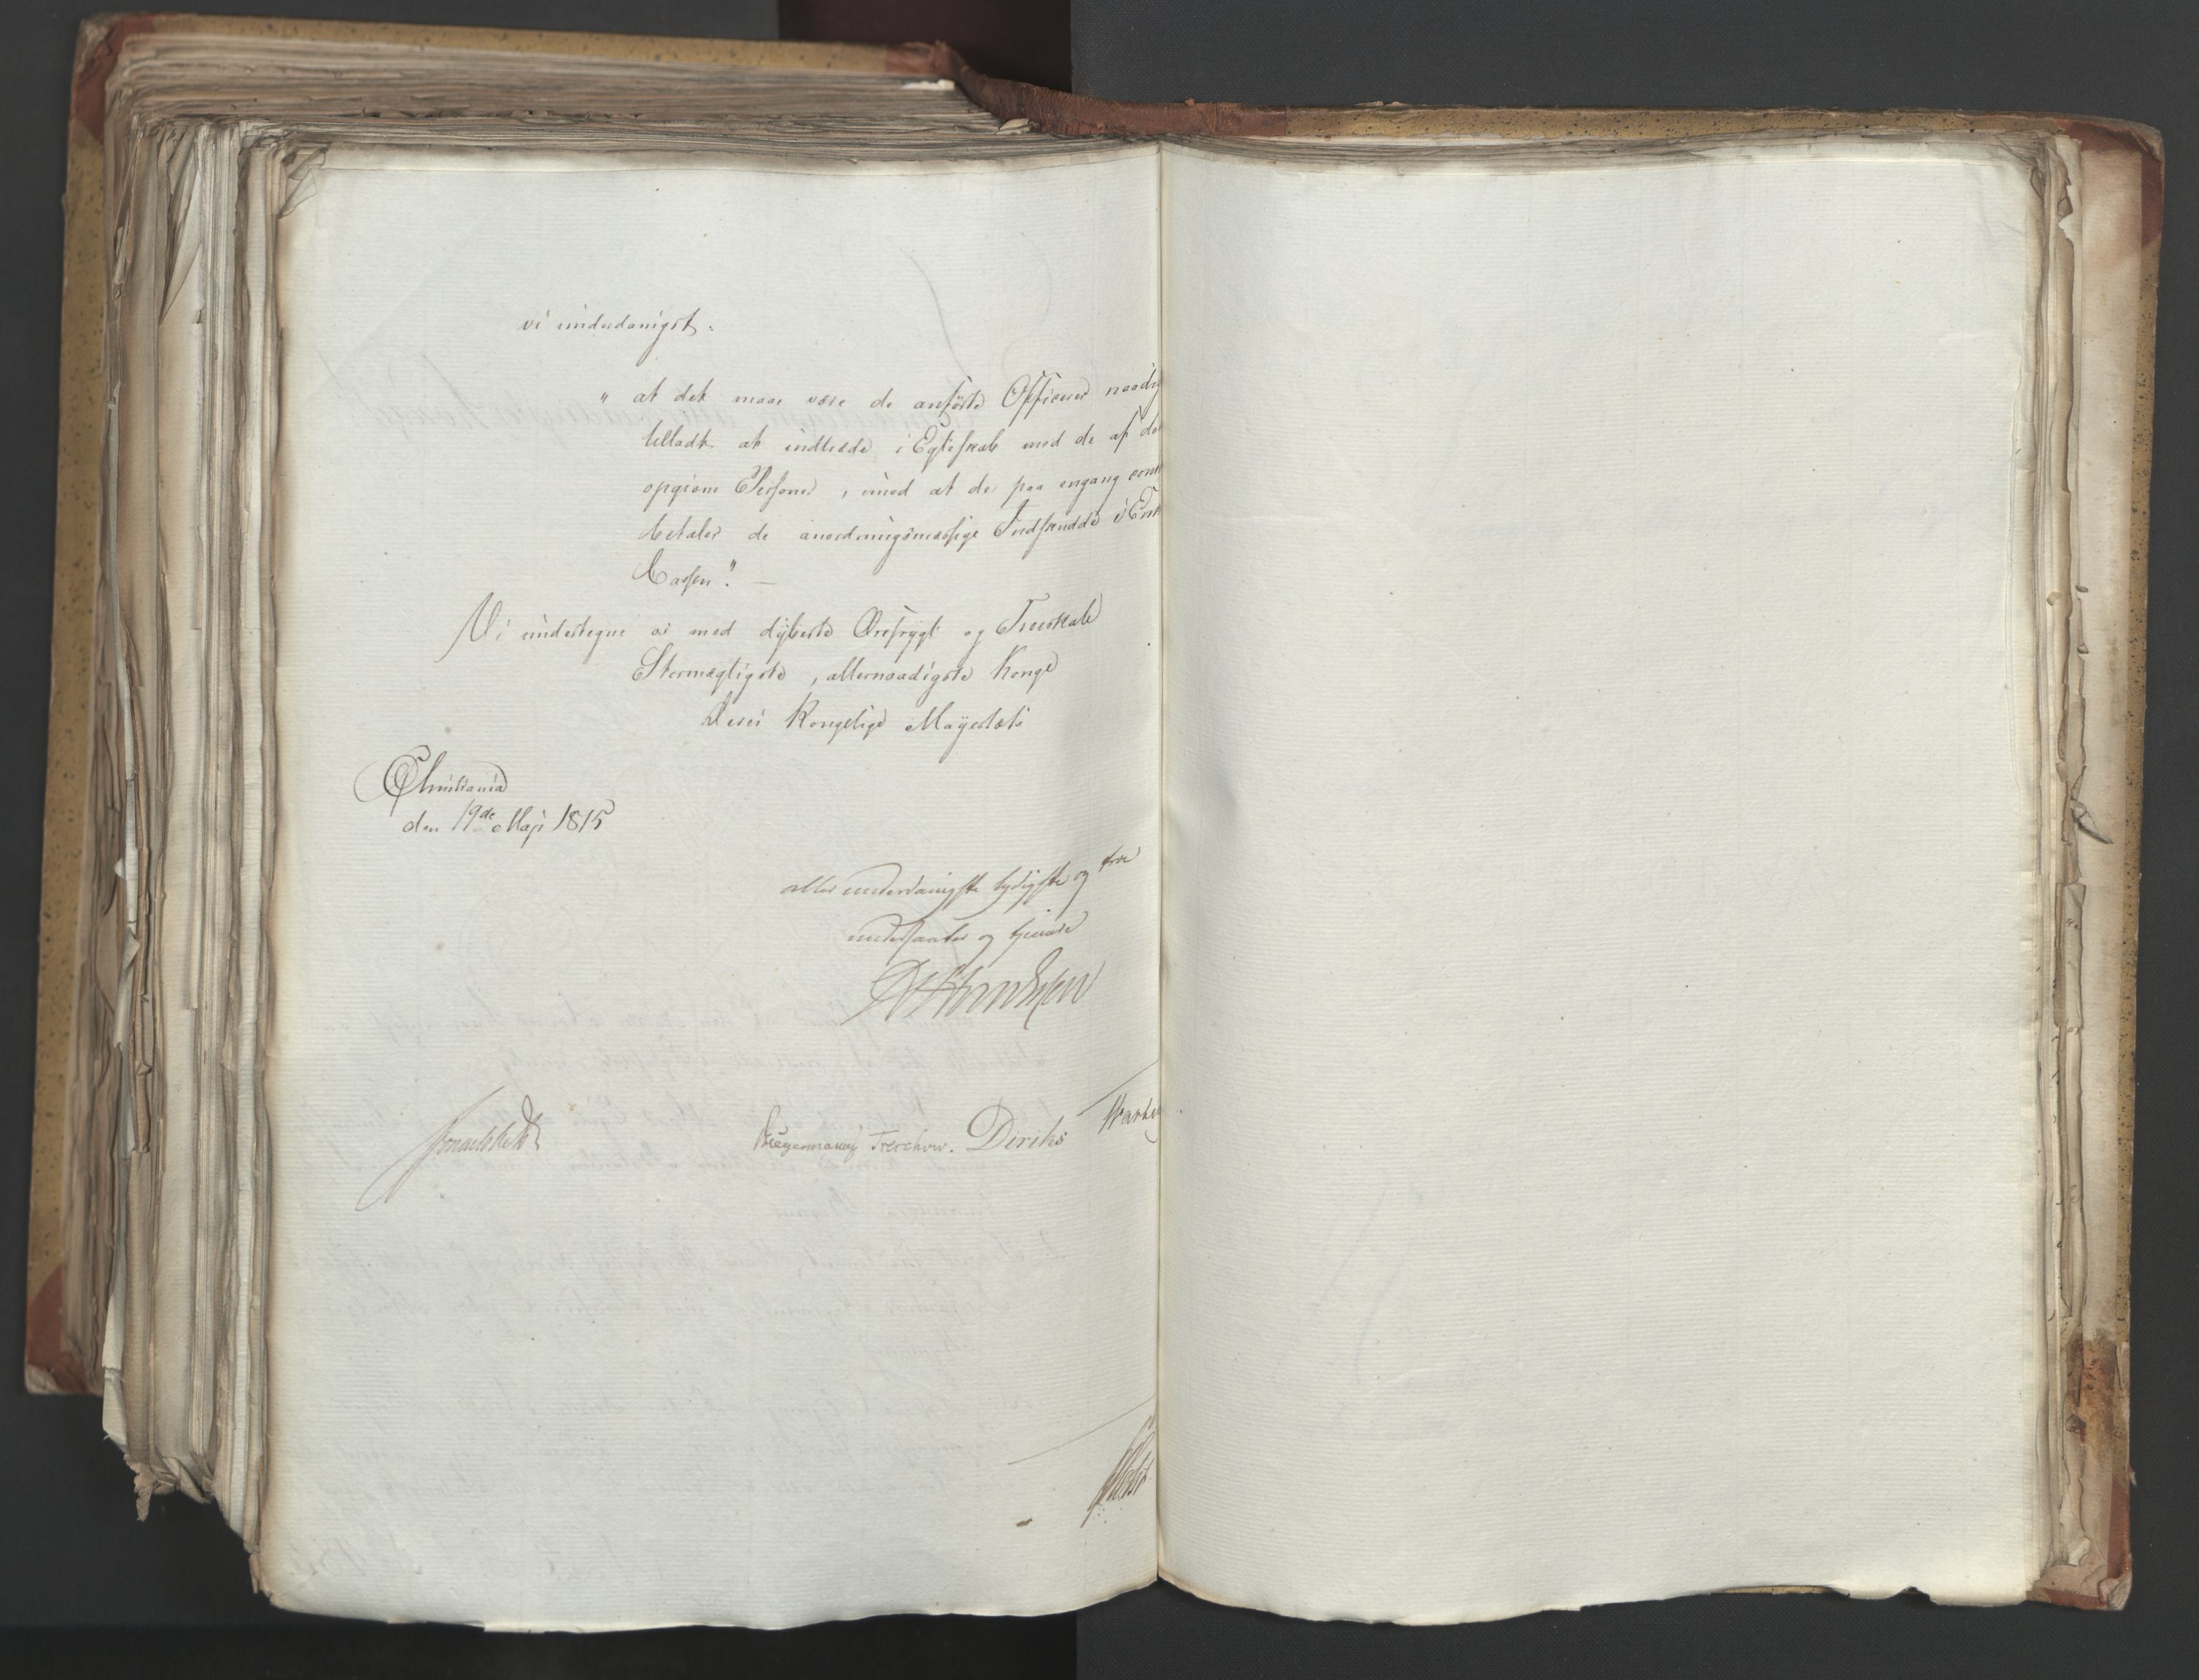 vi underdanigst:
" at det maae være de anførte Officerer naadig
tilladt at indtræde i Egteskab med de af dem
opgivne Personer, imod at de paa engang
betaler de anordningsmæssige Indskudde i
Cassen". —
Vi undertegne os med dÿbeste Ærefrygt og Troeskab
Stormægtigste, allernaadigste Konge
Deres Kongelige Mayestæts
Christiania
den 19de Maji 1815
allerunderdanigste lydigste og troe
undersaatter og tjenere
Treschow. Diriks